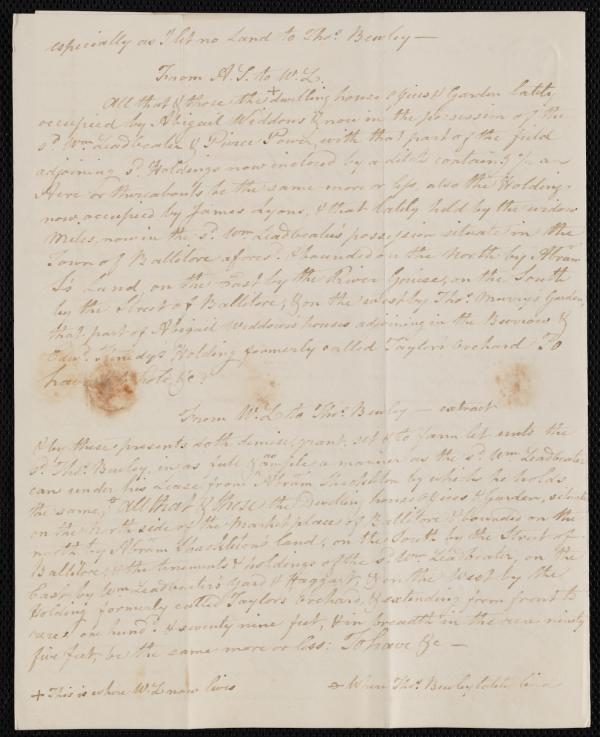 especially as I let no Land to Thos. Bewley —
From A.S. to W.L.
All that & those the + dwelling house, offices & Garden lately
occupied by Abigail Widdows & now in the possession of the
sd. Wm. Leadbeater & Pierce Power, with that part of the field
adjoining sd. Holdings now inclosed by a ditch containg. an
Acre or thereabouts be the same more or less, also the Holding
now occupied by James Lyons, & that lately held by the widow
Miles, now in the sd. Wm. Leadbeater's possession situate in the
Town of Ballitore aforesd. & bounded on the North by Abram
S's Land, on the East by the River Griese, on the South
by the Street of Ballitore, & on the west by Thos. Murray's Garden,
that part of Abigail Widdows's houses adjoining in the Burrow &
Edwd. Kenedy's Holding formerly called Taylor's Orchard To
have & to hold, &c.
From W.L. to Thos. Bewley — extract
& by these presents doth demise, grant, set & to farm let unto the
sd. Thos. Bewley, in as full & as ample a manner as the sd. Wm. Leadbeater
can under his Lease from Abram Shackleton by which he holds
the same, All that & those the Dwelling house offices & Garden, situate
on the North side of the Market place of Ballitore & bounded on the
north by Abram Shackleton's land, on the South by the Street of
Ballitore, & the tenements & holdings of the sd. Wm. Leadbeater, on the
East by Wm. Leadbeater's yard & Haggart, & on the West by the
Holding formerly called Taylor's Orchard, & extending from front to
rere, one hundd. & seventy nine feet, & in breadth in the rere ninety
five feet, be the same more or less: To have &c —
+ This is where W.L. now lives
Where Thos. Bewley lately lived